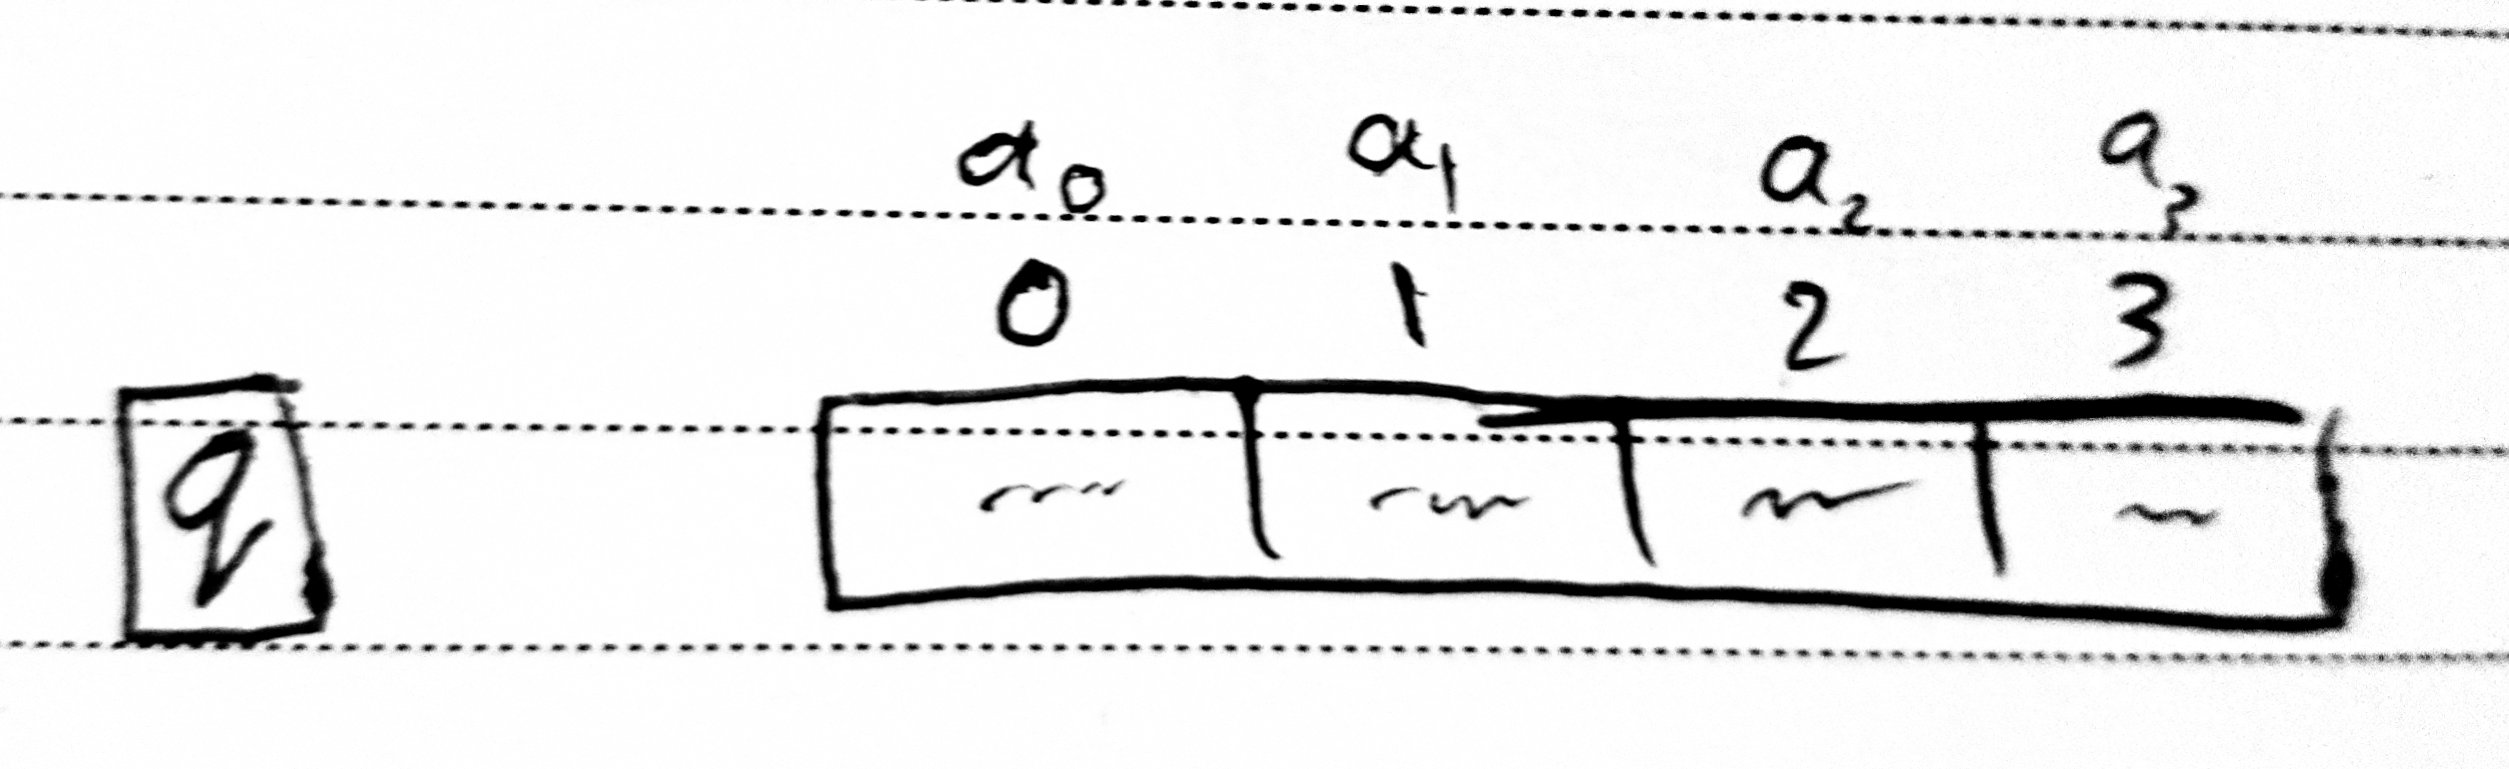 a₀ a₁ a₂ a₃
0 1 2 3
q